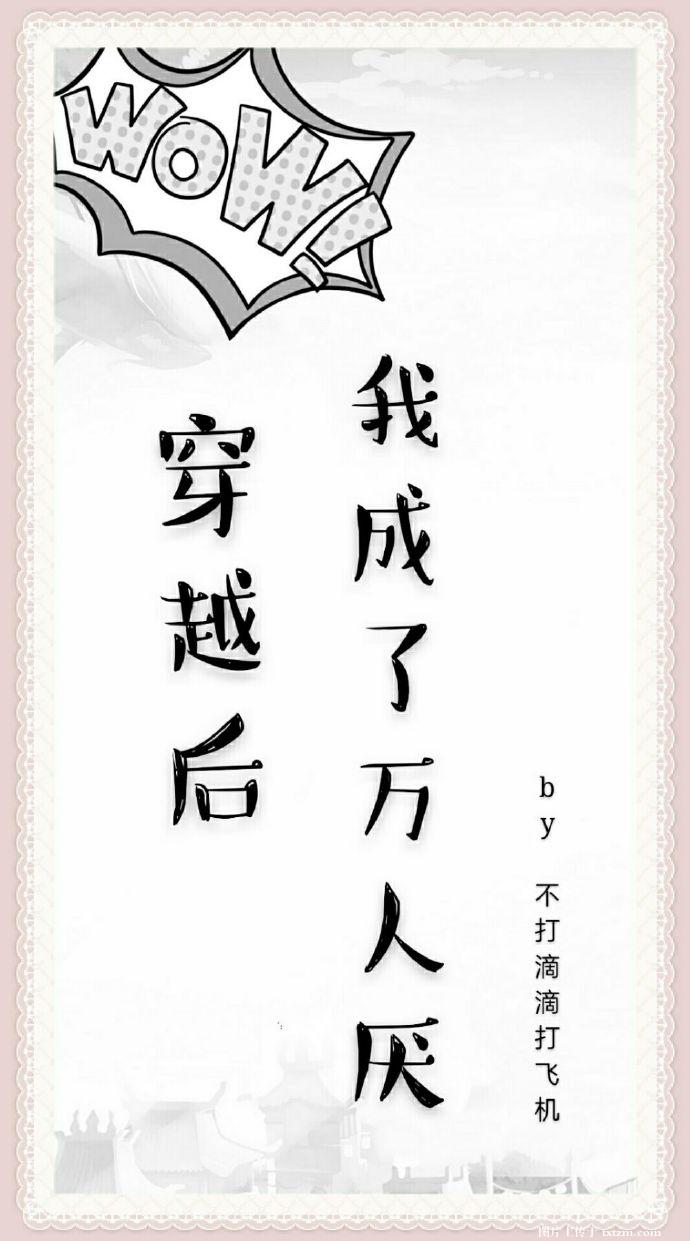 WOW!
穿越后
我成了万人厌
by 不打滴滴打飞机
图片上传于 txtzm.com